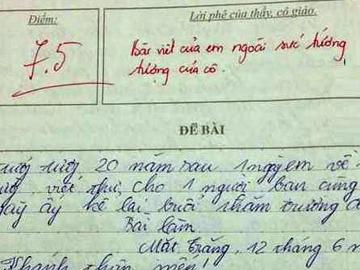 Điểm:
Lời phê của thầy, cô giáo.
7.5
Bài viết của em ngoài sức tưởng
tượng của cô.
ĐỀ BÀI
20 năm sau 1 ngày em về
viết thư, cho 1 người bạn cùng
ấy kể lại buổi thăm trường
Bài làm
Mặt Trăng, 12 tháng 6 n
Khánh thân mến,